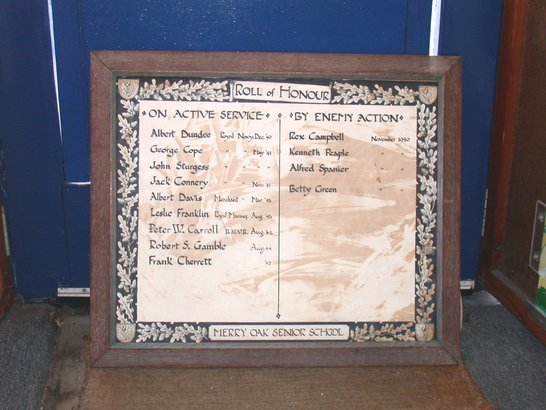 ROLL of HONOUR
ON ACTIVE SERVICE
Albert Dundee Royal Navy Dec. '40
George Cope " " May '41
John Sturgess " "
Jack Connery " " Nov. '41
Albert Davis Merchant "
Leslie Franklin Royal Marines Aug.
Peter W. Carroll R.N.V.R. Aug.
Robert S. Gamble Aug.
Frank Cherrett
BY ENEMY ACTION
Rex Campbell November 1940
Kenneth Peaple " "
Alfred Spanier " "
Betty Green " "
MERRY OAK SENIOR SCHOOL